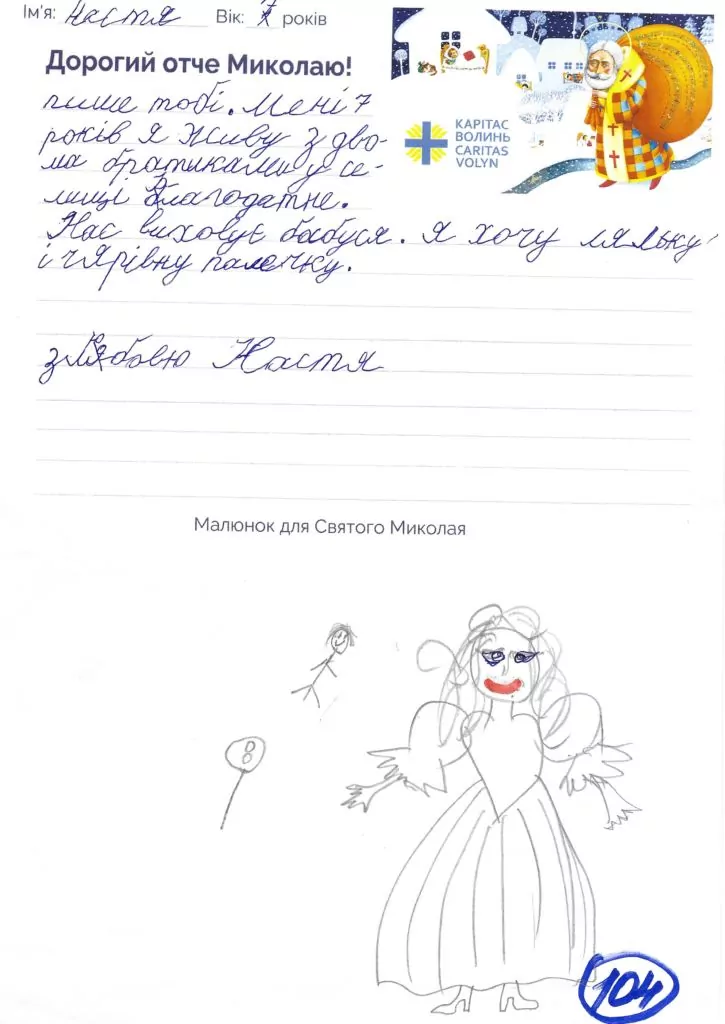 Ім'я: Настя Вік: 7 років
Дорогий отче Миколаю!
КАРІТАС
ВОЛИНЬ
CARITAS
VOLYN
пише тобі. Мені 7
років я живу з дво-
ма братиками у се-
лищі Благодатне.
Нас виховує бабуся. Я хочу ляльку
і чярівну палочку.
з Любовю Настя
Малюнок для Святого Миколая
8
104